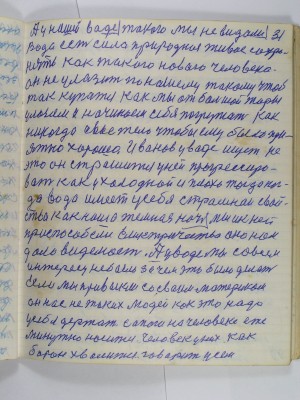 А у нашей воде такого мы не видали 31
Вода есть сила природная живое сохра-
нять как такого нового человека
он не улазит по нашему такому чтоб
так купатся как мы от большой жары
улазим и начинаем себя полускать как
никогда своё тело чтобы ему было при-
ятно хорошо. Иванов у воде ищет не
это он стремится у ней прогрессиро-
вать как у холодной и плохо того холо-
да вода имеет у себя страшная свой-
ства как наша темная ночь мы к ней
приспособили електричество оно нам
дало виденость. А у воде мы совсем
интересу небыло зачем это было думать
если мы привыкли со своим материком
он нас не таких людей как это надо
у себя держать сапоги на человеке еже
минутно носить. человек у нас как
барон хвалится говорит у его